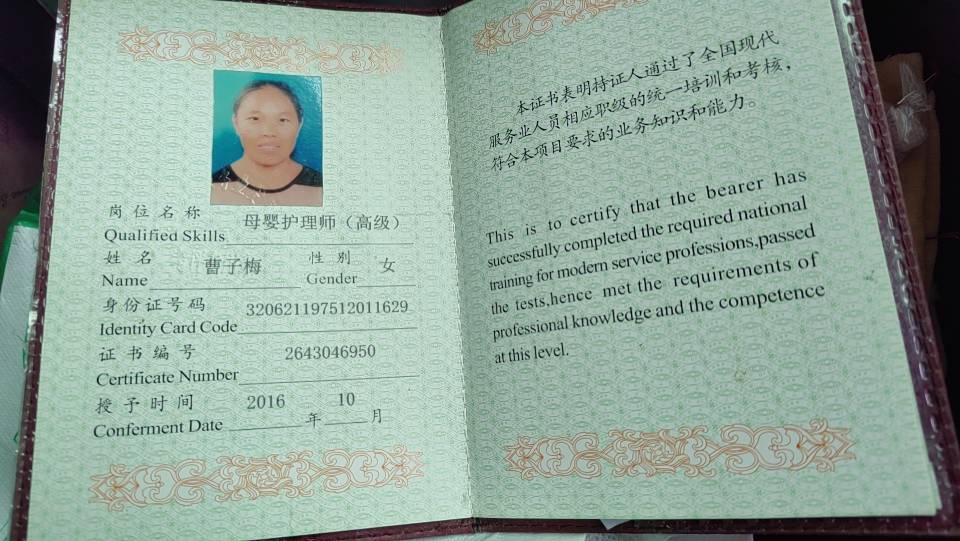 岗位名称 母婴护理师（高级）
Qualified Skills
姓名 曹子梅 性别 女
Name Gender
身份证号码 320621197512011629
Identity Card Code
证书编号 2643046950
Certificate Number
授予时间 2016 10
Conferment Date 年 月
本证书表明持证人通过了全国现代
服务业人员相应职级的统一培训和考核，
符合本项目要求的业务知识和能力。
This is to certify that the bearer has
successfully completed the required national
training for modern service professions,passed
the tests,hence met the requirements of
professional knowledge and the competence
at this level.